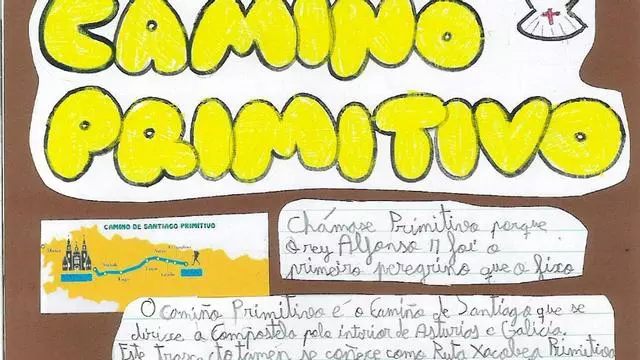 CAMINO
PRIMITIVO
CAMINO DE SANTIAGO PRIMITIVO
Chámase Primitivo porque
O rey Alfonso II foi o
primeiro peregrino que o fixo
O camiño Primitivo é o Camiño de Santiago que se
dirixe a Compostela polo interior de Asturias e Galicia.
Este traxecto tamén se coñece como Ruta Xacobea Primitiva